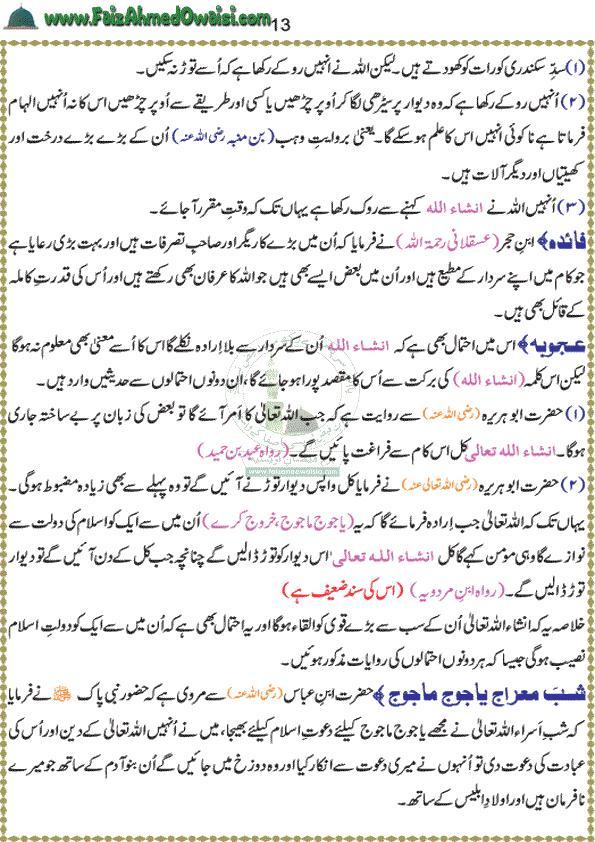 www.FaizAhmedOwaisi.com
13
(۱) سدِّ سکندری کو رات کو کھودتے ہیں۔ لیکن اللہ نے انہیں روکے رکھا ہے کہ اُسے توڑ نہ سکیں۔
(۲) اُنہیں روکے رکھا ہے کہ وہ دیوار پر سیڑھی لگا کر اُوپر چڑھیں یا کسی اور طریقے سے اُوپر چڑھیں اس کا نہ اُنہیں الہام
فرماتا ہے نا کوئی انہیں اس کا علم ہو سکے گا۔ یعنیٰ بروایتِ وہب (بن منبہ رضی اللہ عنہ) اُن کے بڑے بڑے درخت اور
کھیتیاں اور دیگر آلات ہیں۔
(۳) اُنہیں اللہ نے انشاء اللہ کہنے سے روک رکھا ہے یہاں تک کہ وقتِ مقرر آجائے۔
فائدہ﴾ ابنِ حجر (عسقلانی رحمۃ اللہ) نے فرمایا کہ اُن میں بڑے کاریگر اور صاحبِ تصرفات ہیں اور بہت بڑی رعایا ہے
جو کام میں اپنے سردار کے مطیع ہیں اور اُن میں بعض ایسے بھی ہیں جو اللہ کا عرفان بھی رکھتے ہیں اور اُس کی قدرتِ کاملہ
کے قائل بھی ہیں۔
عجوبہ﴾ اس میں احتمال بھی ہے کہ انشاء اللہ اُن کے سردار سے بلا اِرادہ نکلے گا اس کا اُسے معنیٰ بھی معلوم نہ ہوگا
لیکن اس کلمہ (انشاء اللہ) کی برکت سے اُس کا مقصد پورا ہو جائے گا، اِن دونوں احتمالوں سے حدیثیں وارد ہیں۔
(۱) حضرت ابو ہریرہ (رضی اللہ عنہ) سے روایت ہے کہ جب اللہ تعالیٰ کا اَمر آئے گا تو بعض کی زبان پر بے ساختہ جاری
ہوگا۔ انشاء اللہ تعالی کل اس کام سے فراغت پائیں گے۔ (رواہ عبد بن حمید)
www.faizanowaisia.com
(۲) حضرت ابو ہریرہ (رضی اللہ تعالیٰ عنہ) نے فرمایا کل واپس دیوار توڑنے آئیں گے تو وہ پہلے سے بھی زیادہ مضبوط ہوگی۔
یہاں تک کہ اللہ تعالیٰ جب اِرادہ فرمائے گا کہ یہ (یاجوج ماجوج، خروج کرے) اُن میں سے ایک کو اسلام کی دولت سے
نوازے گا وہی مؤمن کہے گا کل انشاء اللہ تعالی' اس دیوار کو توڑ ڈالیں گے چنانچہ جب کل کے دن آئیں گے تو دیوار
توڑ ڈالیں گے۔ (رواہ ابنِ مردویہ) (اس کی سند ضعیف ہے)
خلاصہ یہ کہ انشاء اللہ تعالیٰ اُن کے سب سے بڑے قوی کو القاء ہوگا اور یہ احتمال بھی ہے کہ اُن میں سے ایک کو دولتِ اسلام
نصیب ہوگی جیسا کہ ہر دونوں احتمالوں کی روایات مذکور ہوئیں۔
شبِ معراج یاجوج ماجوج﴾ حضرت ابنِ عباس (رضی اللہ عنہ) سے مروی ہے کہ حضور نبی پاک ﷺ نے فرمایا
کہ شبِ اَسراء اللہ تعالیٰ نے مجھے یاجوج ماجوج کیلئے دعوتِ اسلام کیلئے بھیجا، میں نے اُنہیں اللہ تعالیٰ کے دین اور اُس کی
عبادت کی دعوت دی تو اُنہوں نے میری دعوت سے انکار کیا اور وہ دوزخ میں جائیں گے اُن بنو آدم کے ساتھ جو میرے
نافرمان ہیں اور اولادِ ابلیس کے ساتھ۔